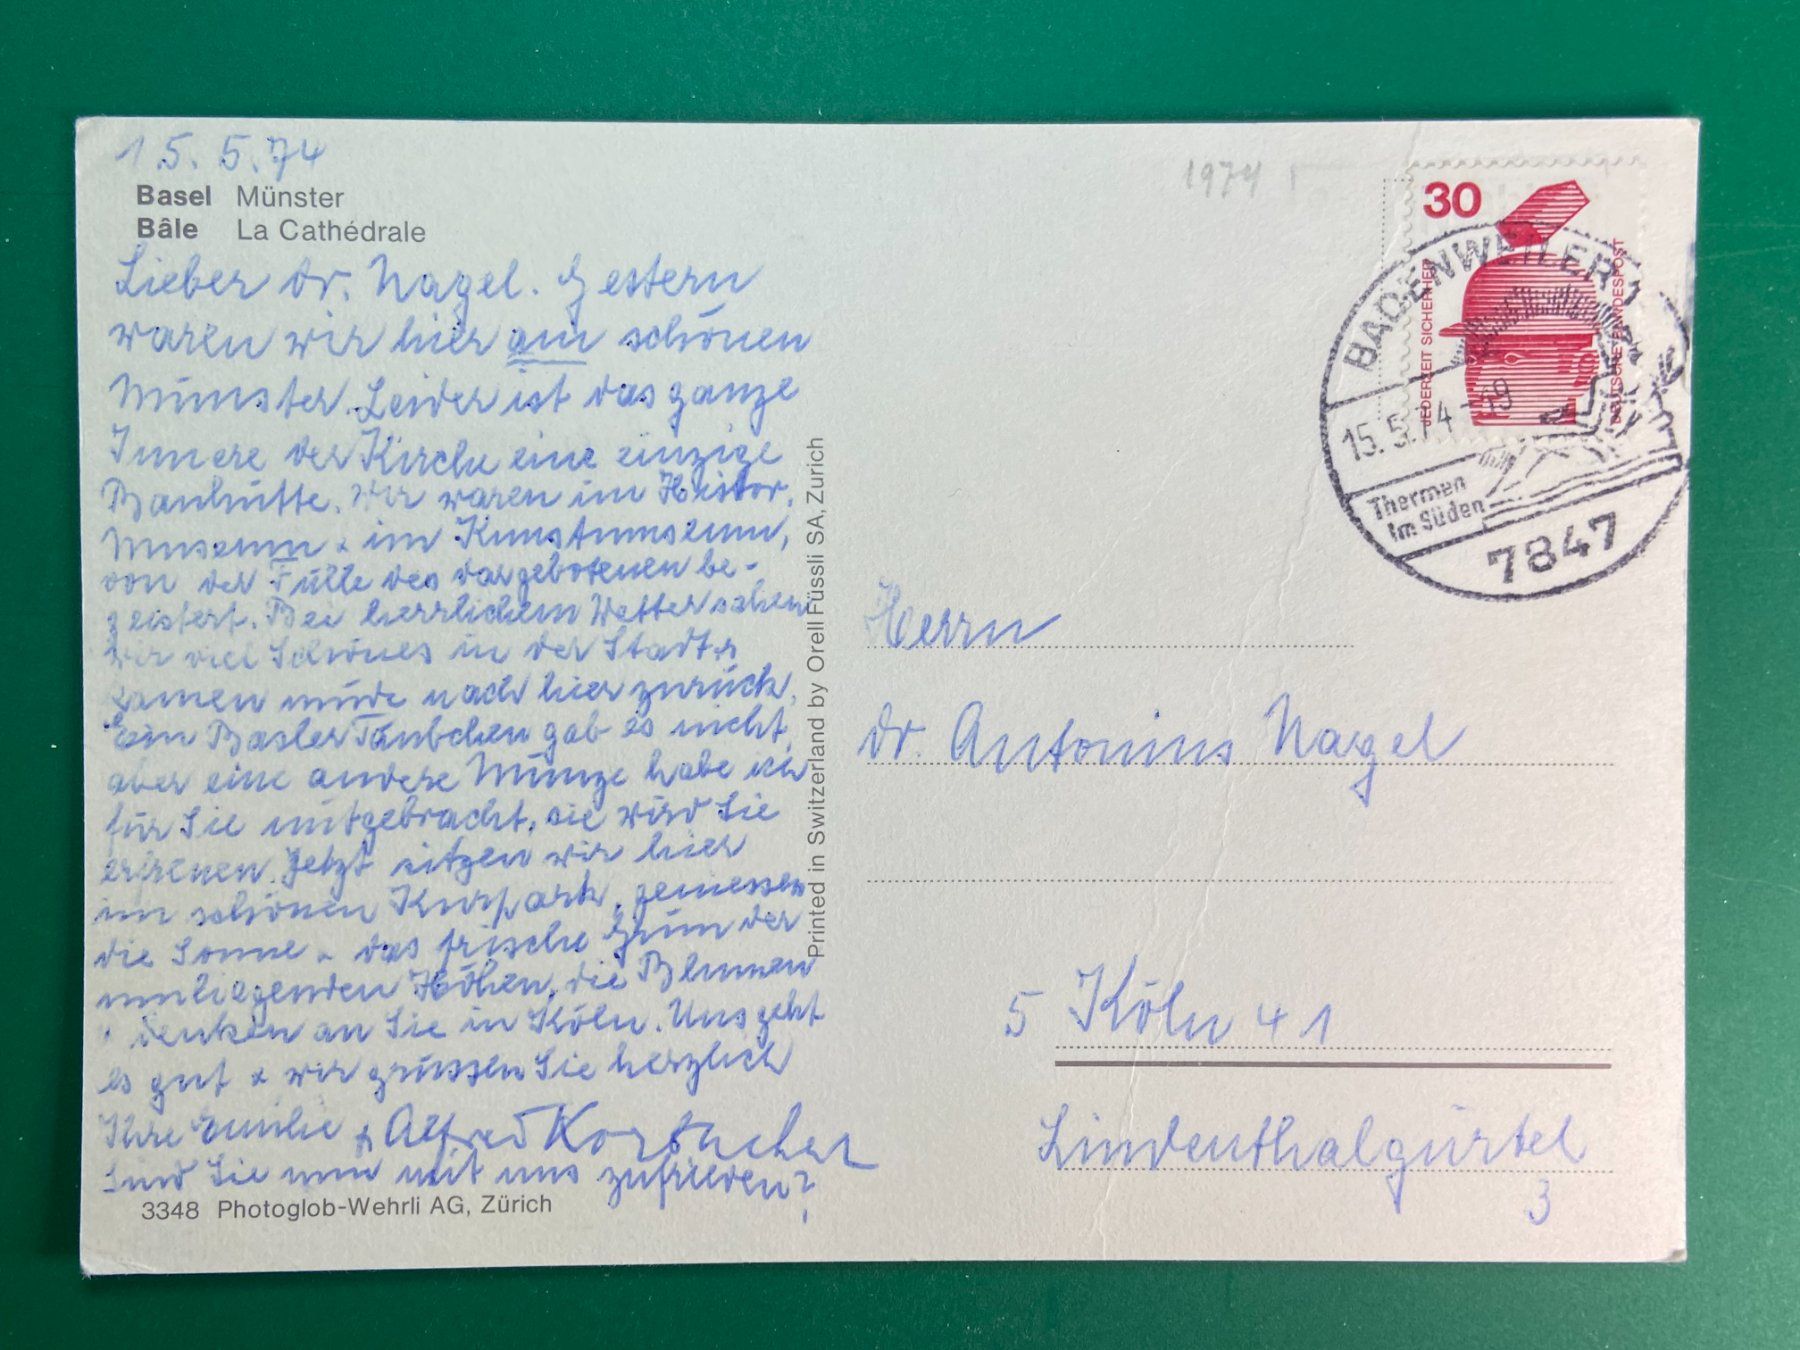 15. 5.74
Basel Münster
Bâle La Cathédrale
Lieber Dr. Nagel. Gestern
waren wir hier am schönen
Münster. Leider ist das ganze
Innere der Kirche eine einzige
Bauhütte. Wir waren im Histor.
Museum & im Kunstmuseum,
von der Fülle des dargebotenen be-
geistert. Bei herrlichem Wetter sahen
wir viel Schönes in der Stadt &
kamen müde nach hier zurück.
Ein Basler Täubchen gab es nicht,
aber eine andere Münze habe ich
für Sie mitgebracht, sie wird Sie
erfreuen. Jetzt sitzen wir hier
im schönen Kurpark, geniessen
die Sonne & das frische Grün der
umliegenden Höhen, die Blumen
denken an Sie in Köln. Uns geht
es gut & wir grüssen Sie herzlich
Ihre Emilie & Alfred
Sind Sie nun mit uns zufrieden?
3348 Photoglob-Wehrli AG, Zürich
Printed in Switzerland by Orell Füssli SA, Zurich
1974
30
JEDERZEIT SICHERHEIT
DEUTSCHE BUNDESPOST
BADENWEILER 1
15. 5.74 - 19
Thermen
im Süden
7847
Herrn
Dr. Antonius Nagel
5 Köln 41
Lindenthalgürtel
3